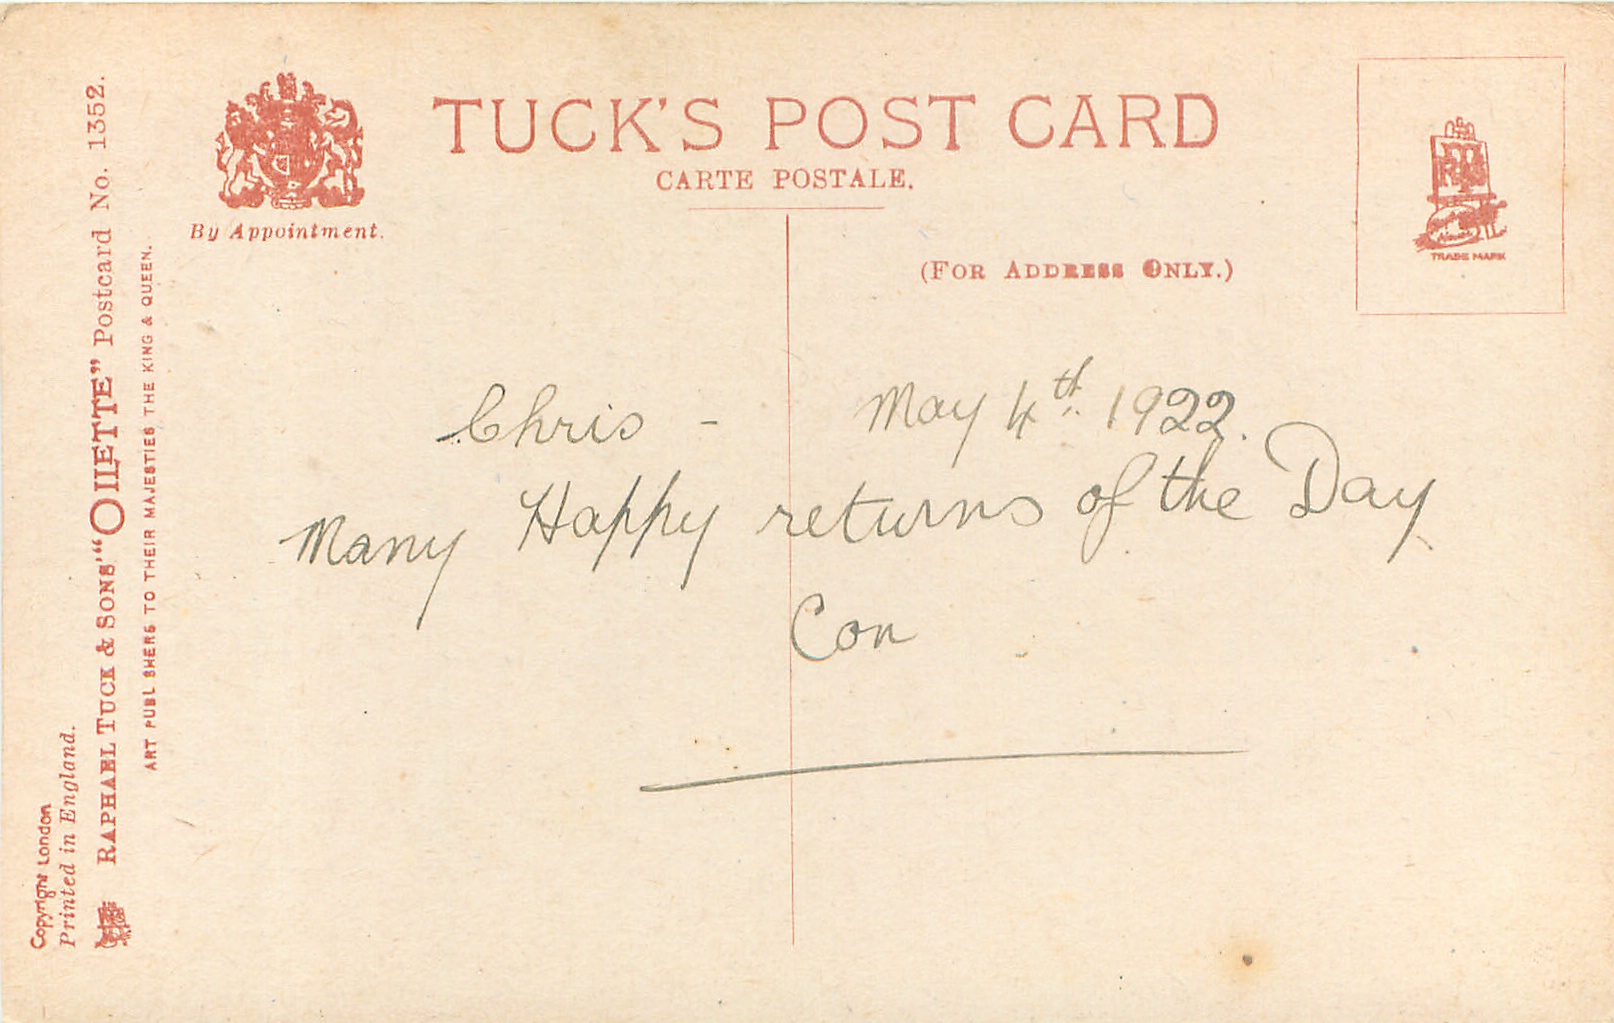 TUCK'S POST CARD
CARTE POSTALE.
By Appointment.
(FOR ADDRESS ONLY.)
TRADE MARK
Chris - May 4th. 1922.
Many Happy returns of the Day
Con
Copyright London
Printed in England.
RAPHAEL TUCK & SONS' "OILETTE" Postcard No. 1352.
ART PUBLISHERS TO THEIR MAJESTIES THE KING & QUEEN.